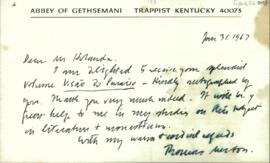 ABBEY OF GETHSEMANI TRAPPIST KENTUCKY 40073
1967
Dear Mr Holanda.
I am delighted to receive your splendid
volume Visão do Paraíso — Kindly autographed by
you. Thank you very much indeed. It will be of
great help to me in my studies on this subject
in literature & monasticism.
With my warm & cordial regards
Thomas Merton